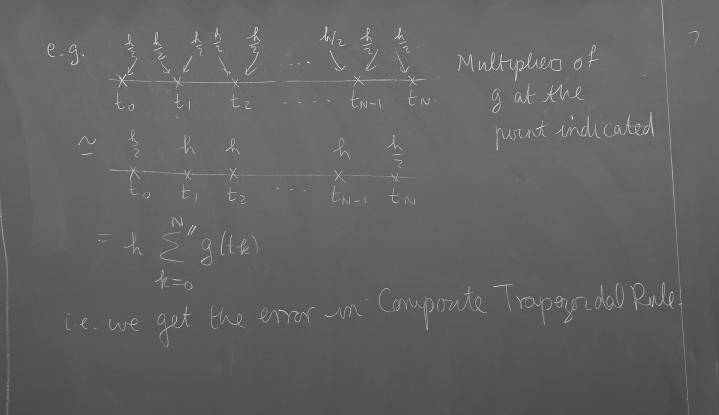 e.g. h/2 h/2 h/2 h/2 h/2 ... h/2 h/2 h/2
t₀ t₁ t₂ .... t_N-1 t_N
Multipliers of
g at the
point indicated
≃ h/2 h h h h/2
t₀ t₁ t₂ ... t_N-1 t_N
= h ∑″ₖ₌₀ᴺ g(tk)
i.e. we get the error in Composite Trapezoidal Rule.